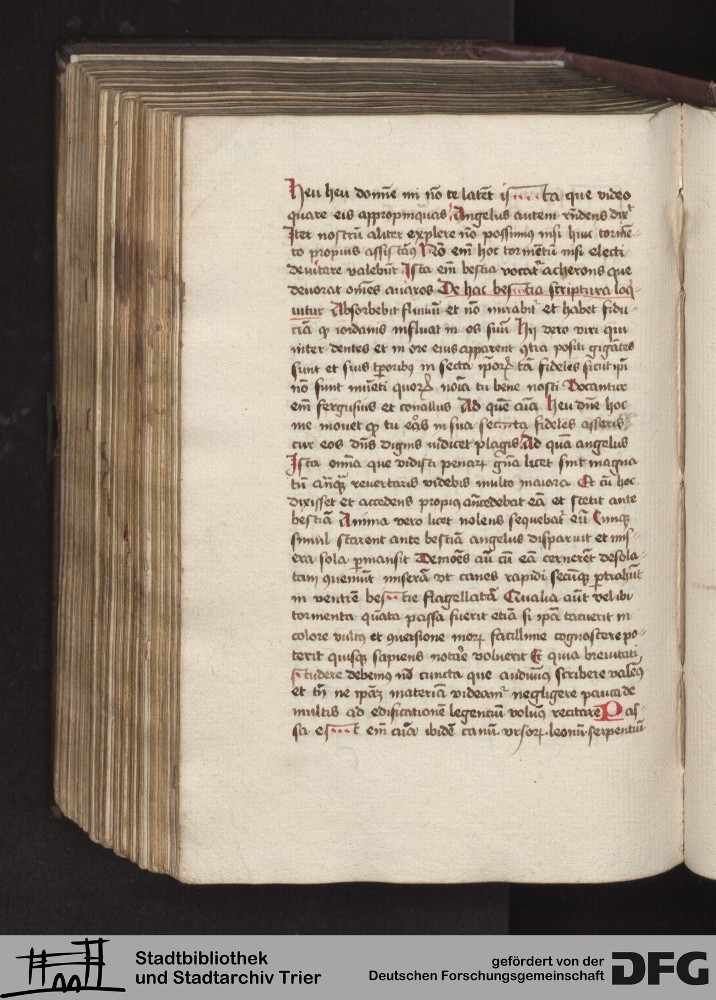 Heu heu domine mi nõ te latẽt ista que video
quare eis appropinquas Angelus autem rñdens dix͛
Iter nostrũ aliter explere nõ possimus nisi huic tormẽ-
to propius assistãus Nõ em̃ hoc tormentũ nisi electi
devitare valebũt Ista em̃ bestia vocat͛ acherons que
devorat om̃es avaros De hac bestia scriptura loq̃-
uitur Absorbebit fluviũ et nõ mirabit͛ et habet fidu-
ciã qꝫ iordanis influat in os suũ Hii vero viri qui
inter dentes et in ore eius apparent ꝯtra positi gigãtes
sunt et suis tꝑoribus in secta ip̃oꝝ tã fideles sicut ip̃i
nõ sunt invẽti quoꝝ noĩa tu bene nosti Vocantur
em̃ fergusius et conallus Ad quẽ aĩa Heu dñe hoc
me movet qꝫ tu eos in sua secta fideles asseris
cur eos dñs dignis iudicet plagis Ad quã angelus
Ista om̃ia que vidisti penaꝝ gña licet sint magna
tñ anꝗ̃ revertaris videbis multo maiora Et cũ hoc
dixisset et accedens propius ancedebat eã et stetit ante
bestiã Anima vero licet nolens sequebat͛ eũ Cunqꝫ
simul starent ante bestiã angelus disparuit et mis-
era sola ꝑmansit Demões aũ cũ eã cernerẽt desola-
tam ꝯveniũt miserã vt canes rapidi secũqꝫ ꝑtrahũt
in ventrẽ bestie flagellatã Qualia aũt vel ibi
tormenta quãta passa fuerit etiã si ip̃a tacuerit in
colore vultus et ꝯversione moꝝ facillime cognoscere po-
terit quisqꝫ sapiens notare voluerit Et quia brevitati
studere debemus nõ cuncta que audivimus scribere valemus
et tñ ne ip̃aꝫ materiã videam͛ negligere pauca de
multis ad edificationẽ legenciũ volumus recitare Pas-
sa est em̃ aĩa ibidẽ canũ. vrsoꝝ. leonũ. serpentiũ
Stadtbibliothek
und Stadtarchiv Trier
gefördert von der
Deutschen Forschungsgemeinschaft
DFG